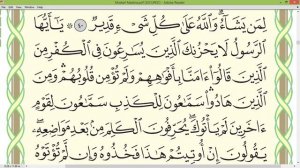 Mushaf Madinah.pdf (SECURED) - Adobe Reader
لِمَن يَشَآءُ ۗ وَٱللَّهُ عَلَىٰ كُلِّ شَىْءٍ قَدِيرٌ ٤٠ ۞ يَـٰٓأَيُّهَا
ٱلرَّسُولُ لَا يَحْزُنكَ ٱلَّذِينَ يُسَـٰرِعُونَ فِى ٱلْكُفْرِ مِنَ
ٱلَّذِينَ قَالُوٓا۟ ءَامَنَّا بِأَفْوَٰهِهِمْ وَلَمْ تُؤْمِن قُلُوبُهُمْ ۛ وَمِنَ
ٱلَّذِينَ هَادُوا۟ ۛ سَمَّـٰعُونَ لِلْكَذِبِ سَمَّـٰعُونَ لِقَوْمٍ
ءَاخَرِينَ لَمْ يَأْتُوكَ ۖ يُحَرِّفُونَ ٱلْكَلِمَ مِنۢ بَعْدِ مَوَاضِعِهِۦ ۖ
يَقُولُونَ إِنْ أُوتِيتُمْ هَـٰذَا فَخُذُوهُ وَإِن لَّمْ تُؤْتَوْهُ